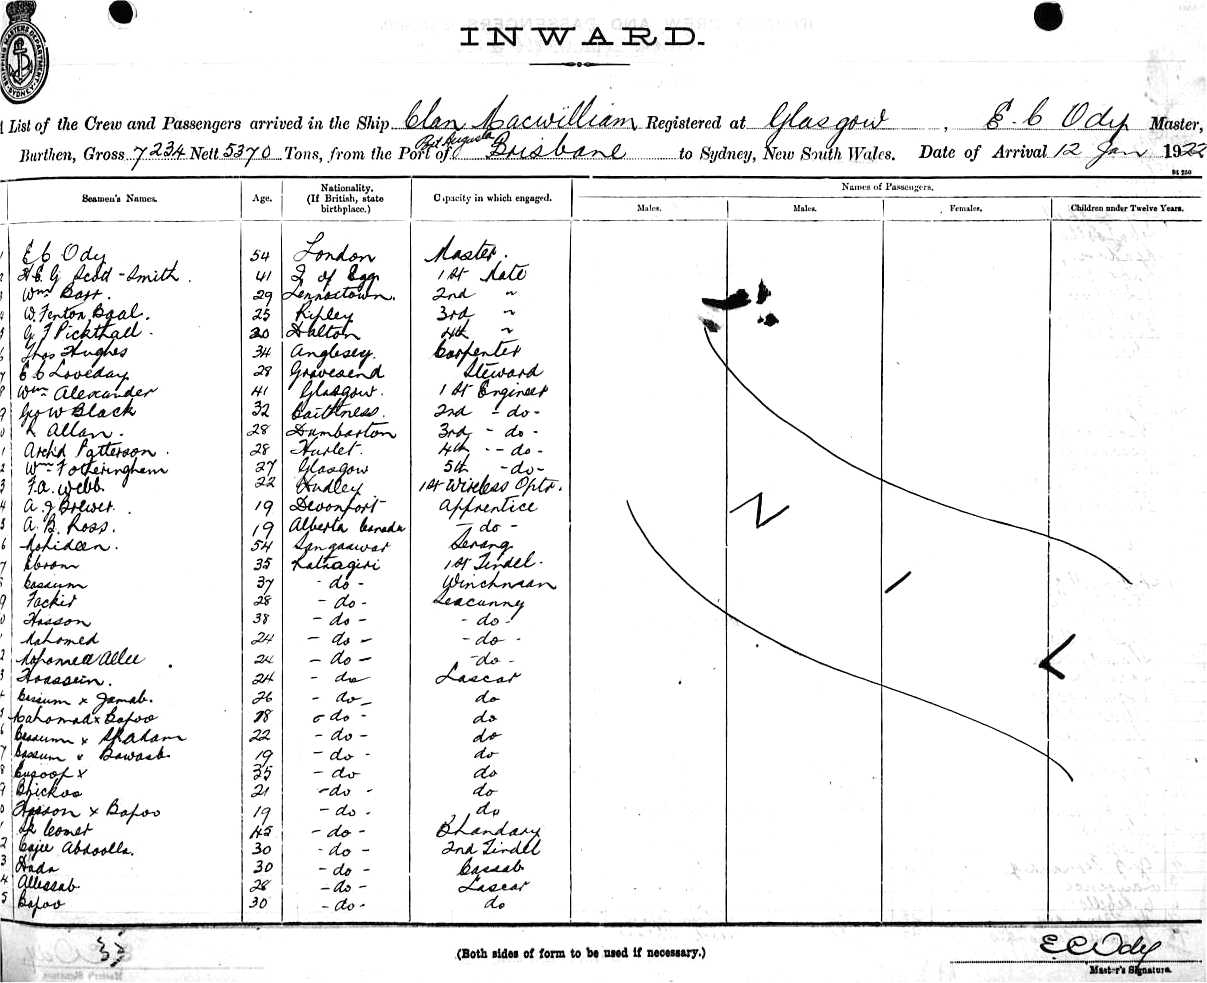 INWARD.
List of the Crew and Passengers arrived in the Ship Clan Macwilliam Registered at Glasgow, E. C Ody Master,
Burthen, Gross 7234 Nett 5370 Tons, from the Port of Port Augusta Brisbane to Sydney, New South Wales. Date of Arrival 12 Jan 1922
Seamen's Names. Age. Nationality. (If British, state birthplace.) Capacity in which engaged. Names of Passengers.
Males. Males. Females. Children under Twelve Years.
E C Ody 54 London Master.
H. E. G Scott-Smith. 41 I of Egg 1st Mate
Wm Barr. 29 Lennoxtown. 2nd "
W. Fenton Boal. 25 Ripley 3rd "
G J Pickthall. 20 Halton 4th "
Thos Hughes 34 Anglesey. Carpenter
E C Loveday 28 Gravesend Steward
Wm Alexander 41 Glasgow. 1st Engineer
Geo W Black 32 Caithness. 2nd -do-
R Allan. 28 Dumbarton 3rd -do-
Archd Patterson. 28 Hurlet. 4th -do-
Wm Fotheringham 27 Glasgow 5th -do-
F. A. Webb. 22 1st Wireless Optr.
A. J Brewer. 19 Devonport Apprentice
A. B. Ross. 19 Alberta Canada -do-
Mohideen. 54 Serang
Ebrom 35 Ratnagiri 1st Tindel.
Cassum 37 -do- Winchman
Fackir 28 -do- Seacunny
Hasson 38 -do- -do-
Mahomed 24 -do- -do-
Mahomed Allee 24 -do- -do-
Hoassein. 24 -do Lascar
Cassum x Jamab. 26 -do- do
Mahomad x Bapoo 18 -do- do
Cassum x 22 -do- do
Cassum x Bawasb 19 -do- do
Eusoof x 35 -do do
Bhickoo 21 -do- do
Hasson x Bapoo 19 -do- do
Sk Oomer 45 -do- Bhandary
Cajee Abdoolla. 30 -do- 2nd Tindel
Dada 30 -do- Cassab
Allissab 28 -do- Lascar
Bapoo 30 -do- do
(Both sides of form to be used if necessary.)
E C Ody
Master's Signature.